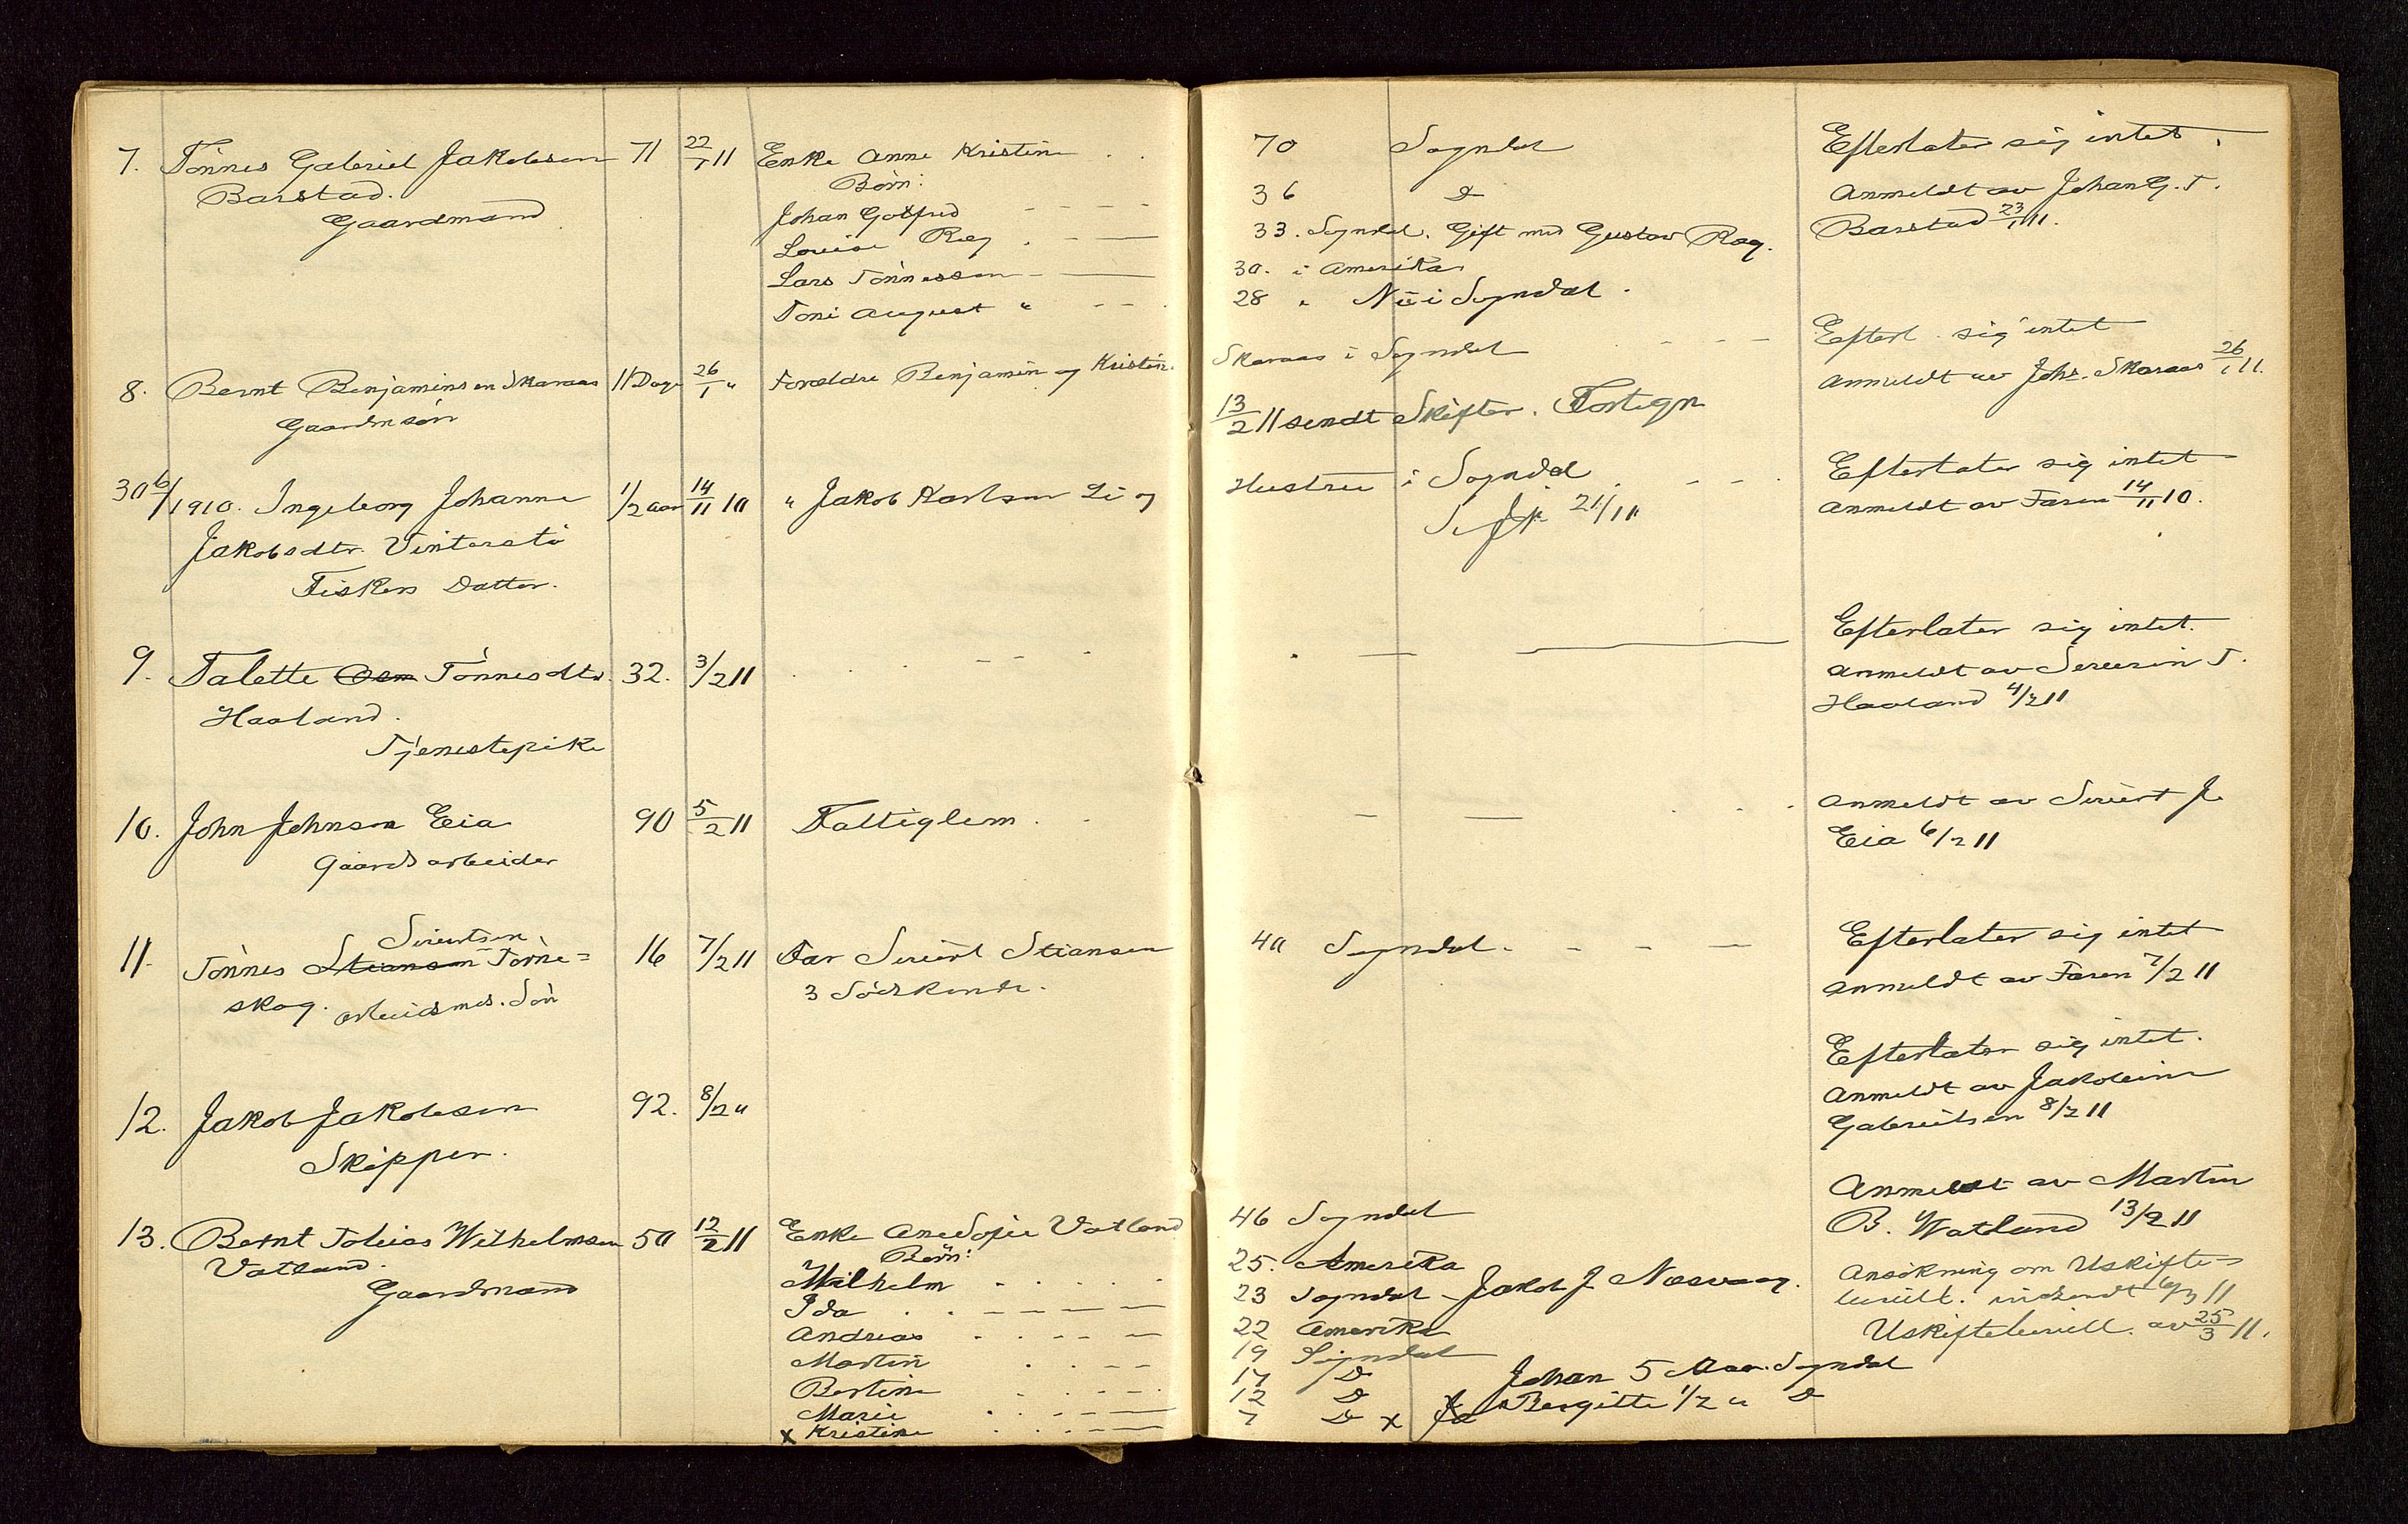 7. Tönnes Gabriel Jakobsen 71 22/1 11 Enke Anne Kristine 70 Sogndal Efterlater sig intet.
Barstad. Börn:
Gaardmand Johan Gotfred 36 D Anmeldt av Johan G. T.
Louise Røg 33. Sogndal. Gift med Gustav Røg. Barstad 23/1 11.
Lars Tönnessen 30. i Amerika
Toni August " 28 " Nu i Sogndal.
8. Bernt Benjaminsen Skaraas 11 Dage 26/1 " Forældre Benjamin og Kristine Skaraas i Sogndal Efterl. sig intet
Gaardm sön 13/2 11 sendt Skifter. Fortegn Anmeldt av Johs. Skaraas 26/1 11.
30 6/1910. Ingeborg Johanne 1/2 Aar 14/11 10 " Jakob Karlsen Li og Hustru i Sogndal Efterlater sig intet
Jakobsdtr. Vinterstö 21/11 Anmeldt av Faren 14/11 10.
Fiskers Datter.
9. Talette Tönnesdtr. 32. 3/2 11 Efterlater sig intet.
Haaland. Anmeldt av Severin T.
Tjenestepike Haaland 4/2 11
10. John Johnson Eia 90 5/2 11 Fattiglem. Anmeldt av Sivert J.
Gaardsarbeider Eia 6/2 11
Sivertsen
11. Tönnes Stiansen Törne= 16 7/2 11 Far Sivert Stiansen 40 Sogndal. Efterlater sig intet
skog. arbeidsmds. Sön 3 Södskende. Anmeldt av Faren 7/2 11
12. Jakob Jakobsen 92. 8/2 " Efterlater sig intet.
Skipper. Anmeldt av Jakobine
Gabrielsen 8/2 11
13. Bernt Tobias Wilhelmsen 50 12/2 11 Enke Ane Sofie Vatland 46 Sogndal Anmeldt av Martin
Vatland. Börn: B. Watland 13/2 11
Gaardmand Wilhelm 25. Amerika Ansökning om Uskifte=
Ida 23 Sogndal - Jakob J. Nesvaag. bevill. indsendt 6/3 11
Andreas 22 Amerika Uskiftebevill. av 25/3 11.
Martin 19 Sogndal
Bertine 17 D Johan 5 Aar. Sogndal
Marie 12 D Bergitte 1/2 " D
x Kristine 7 D x